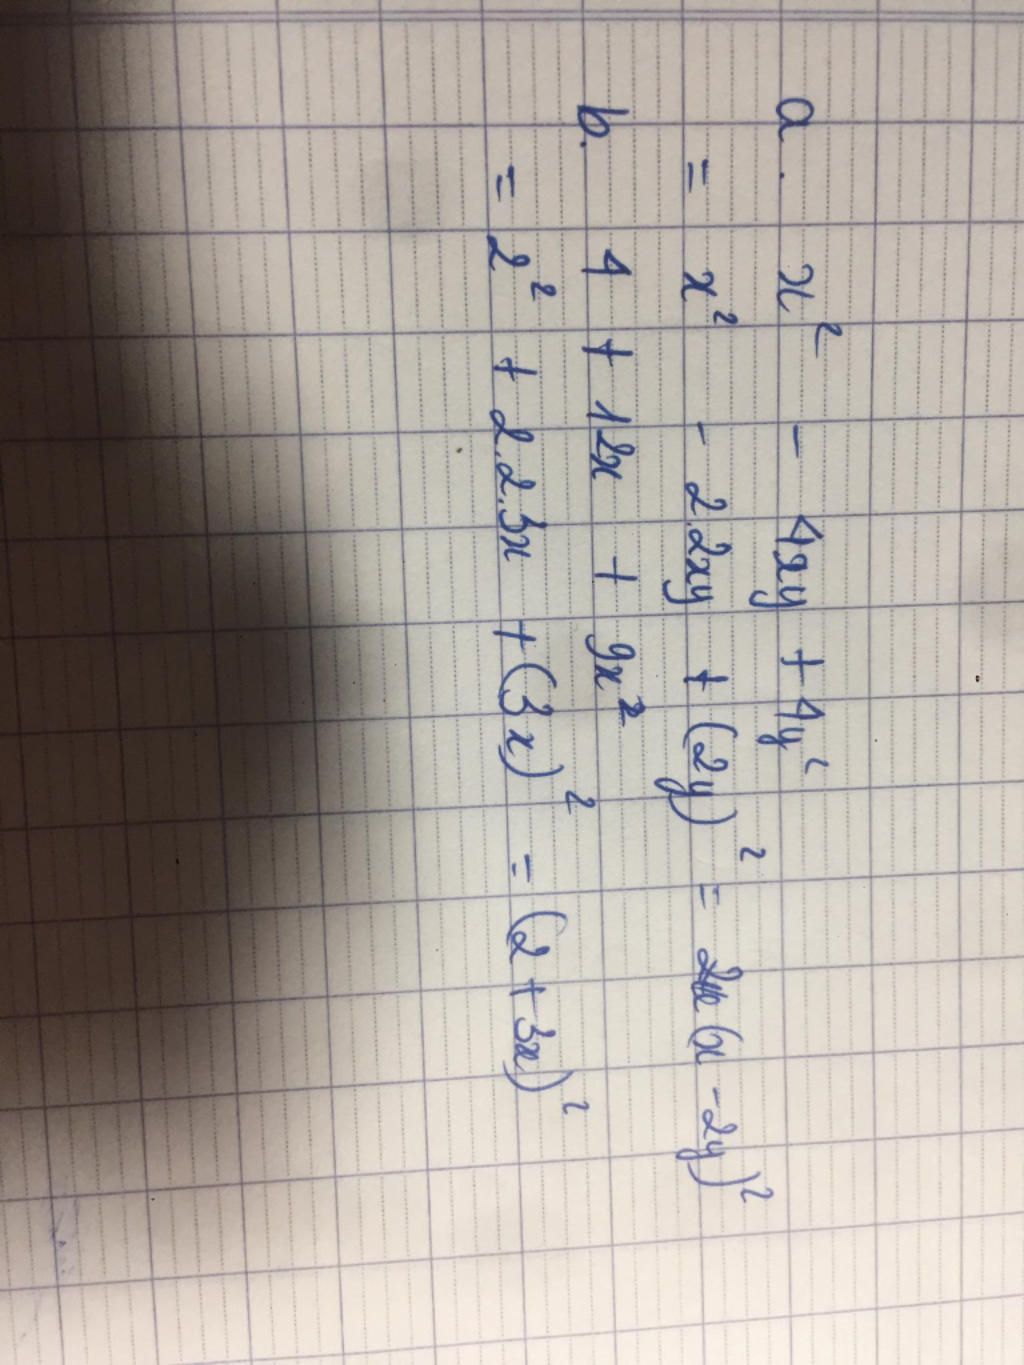 a. x² - 4xy + 4y²
= x² - 2.2xy + (2y)² = (x - 2y)²
b. 4 + 12x + 9x²
= 2² + 2.2.3x + (3x)² = (2 + 3x)²